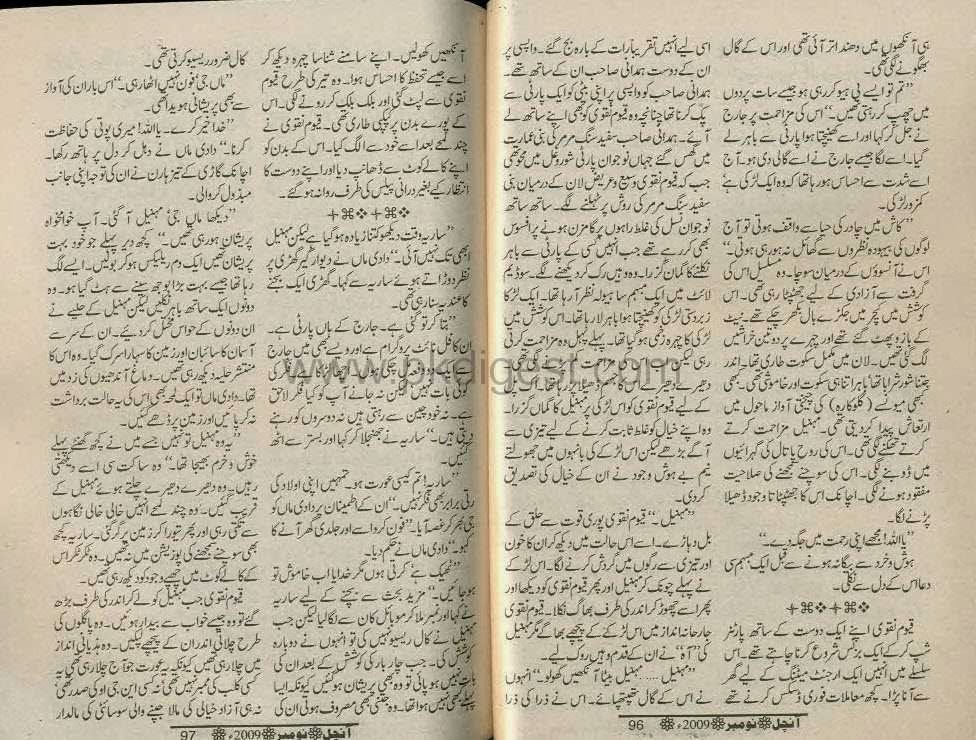 ہی آنکھوں میں دھند اتر آئی تھی اور اس کے گال
بھگونے لگی تھی۔
”تم تو ایسے بی ہیو کر رہی ہو جیسے سات پردوں
میں چھپ کر رہتی تھیں۔“ اس کی مزاحمت پر جارج
نے جل کر کہا اور اسے کھینچتا ہوا پارٹی سے باہر لے
گیا۔ اسے لگا جیسے جارج نے اسے گالی دی ہو۔ آج
اسے شدت سے احساس ہو رہا تھا کہ وہ ایک لڑکی ہے‘
کمزور لڑکی۔
”کاش میں چادر کی حیا سے واقف ہوتی تو آج
لوگوں کی بیہودہ نظروں سے گھائل نہ ہو رہی ہوتی۔“
اس نے آنسوؤں کے درمیان سوچا۔ وہ مسلسل اس کی
گرفت سے آزادی کے لیے چھٹپٹا رہی تھی۔ اس
کوشش میں کیچر میں جکڑے بال بکھر چکے تھے۔ نیٹ
کے بازو پھٹ گئے تھے اور چہرے پر دو تین خراشیں
لگ گئی تھیں۔ لان میں مکمل سکوت طاری تھا۔ اندر
جتنا شور شرابا تھا‘ باہر اتنا ہی سکوت اور خاموشی تھی۔ بھی
کبھی میونسے (گلوکارہ) کی چیختی آواز ماحول میں
ارتعاش پیدا کر دیتی تھی۔ مہنیل مزاحمت کرتے
کرتے تھکنے لگی تھی۔ اس کی روح پاتال کی گہرائیوں
میں ڈوبنے لگی۔ اس کی سوچنے سمجھنے کی صلاحیت
مفقود ہونے لگی۔ اچانک اس کا چھٹپٹاتا وجود ڈھیلا
پڑنے لگا۔
”یا اللہ! مجھے اپنی رحمت میں جگہ دے۔“
ہوش و خرد سے بیگانہ ہونے سے قبل ایک مبہم سی
دعا اس کے دل سے نکلی۔
قیوم نقوی اپنے ایک دوست کے ساتھ پارٹنر
شپ کر کے ایک بزنس شروع کرنا چاہتے تھے۔ اس
سلسلے میں انہیں ایک ارجنٹ میٹنگ کے لیے گھر
آنا پڑا۔ کچھ معاملات فوری ڈسکس کرنے تھے
اسی لیے انہیں تقریباً رات کے بارہ بج گئے۔ واپسی پر
ان کے دوست ہمدانی صاحب ان کے ساتھ تھے۔
ہمدانی صاحب کو واپسی پر اپنی بیٹی کو ایک پارٹی سے
پک کرنا تھا چنانچہ وہ قیوم نقوی کو بھی اپنے ساتھ لے
آئے۔ ہمدانی صاحب سفید سنگ مرمر کی بنی عمارت
میں گھس گئے جہاں نوجوان پارٹی شور غل میں محو تھی
جب کہ قیوم نقوی وسیع و عریض لان کے درمیان بنی
سفید سنگ مرمر کی روش پر ٹہلنے لگے۔ ساتھ ساتھ
نوجوان نسل کی غلط راہوں پر گامزن ہونے پر افسوس
بھی کر رہے تھے جب انہیں کسی کے پارٹی سے باہر
نکلنے کا گمان گزرا۔ وہ وہیں رک کر دیکھنے لگے۔ سوڈیم
لائٹ میں ایک مبہم سا ہیولہ نظر آ رہا تھا۔ ایک لڑکا
زبردستی لڑکی کو کھینچتا ہوا باہر لا رہا تھا۔ اس کوشش میں
لڑکی کا چہرہ زخمی ہو گیا تھا۔ پہلے پہل وہ مزاحمت کرتی
رہی لیکن
دھیرے دھیرے اس کا جسم ڈھیلا پڑ رہا تھا۔
کے لیے قیوم نقوی کو اس لڑکی پر مہنیل کا گماں گزرا۔
وہ اپنے خیال کو غلط ثابت کرنے کے لیے تیزی سے
آگے بڑھے لیکن اس لڑکے کی بانہوں میں جھولتے
نیم بے ہوش وجود نے ان کے خیال کی تصدیق
کر دی۔
”مہنیل۔“ قیوم نقوی پوری قوت سے حلق کے
بل دہاڑے۔ اسے اس حالت میں دیکھ کر ان کا خون
اور تیزی سے رگوں میں گردش کرنے لگا۔ اس لڑکے
نے پہلے چونک کر مہنیل اور پھر قیوم نقوی کو دیکھا اور
پھر اسے چھوڑ کر اندر کی طرف بھاگ نکلا۔ قیوم نقوی
جارحانہ انداز میں اس لڑکے کے پیچھے بھاگے مگر مہنیل
کی ”آہ“ نے ان کے قدم وہیں روک لیے۔
”مہنیل.... مہنیل بیٹا آنکھیں کھولو۔“ انہوں
نے اس کے گال تھپتھپائے۔ اس نے ذرا کی ذرا
آنچل نومبر 2009ء 96
آنکھیں کھولیں۔ اپنے سامنے شناسا چہرہ دیکھ کر
اسے جیسے تحفظ کا احساس ہوا۔ وہ تیر کی طرح قیوم
نقوی سے لپٹ گئی اور بلک بلک کر رونے لگی۔ اس
کے پورے بدن پر کپکپی طاری تھی۔ قیوم نقوی نے
چند لمحے بعد اسے خود سے الگ کیا۔ اس کے بدن کو
اپنے کالے کوٹ سے ڈھانپ دیا اور اپنے دوست کا
انتظار کیے بغیر درانی پیلس کی طرف روانہ ہو گئے۔
”ساریہ وقت دیکھو کتنا زیادہ ہو گیا ہے لیکن مہنیل
ابھی تک نہیں آئی۔“ دادی ماں نے دیوار گیر گھڑی پر
نظر دوڑاتے ہوئے ساریہ سے کہا۔ گھڑی ایک بجنے
کا عندیہ سنا رہی تھی۔
”بتا کر تو گئی ہے۔ جارج کے ہاں پارٹی ہے۔
ان کا فل نائٹ پروگرام ہے اور ویسے بھی میں جارج
کوئی بات نہیں لیکن نہ جانے آپ کو کیا فکر لاحق
ہے۔ نہ خود چین سے رہتی ہیں نہ دوسروں کو رہنے
دیتی ہیں۔“ ساریہ نے جھنجلا کر کہا اور بستر سے اٹھ
گئیں۔
”ساریہ! تم کیسی عورت ہو۔ تمہیں اپنی اولاد کی
رتی برابر بھی فکر نہیں۔“ ان کے اطمینان پر دادی ماں کو
جی بھر کر غصہ آیا۔ ”فون کرو اسے اور جلدی گھر آنے کا
کہو۔“ دادی ماں نے حکم دیا۔
”ٹھیک ہے‘ کرتی ہوں مگر خدایا اب خاموش تو
ہو جائیں۔“ مزید بحث سے بچنے کے لیے ساریہ
نے کہا اور نمبر ملا کر موبائل کان سے لگا لیا لیکن جب
مہنیل نے کال ریسیو نہیں کی تو انہوں نے دوبارہ
کوشش کی۔ جب چار بار کی کوشش کے بعد ان کی
بات نہیں ہو پائی تو وہ بھی پریشان ہو گئیں کیونکہ ایسا
پہلے کبھی نہیں ہوا تھا۔ وہ جتنی بھی مصروف ہوتی ان کی
کال ضرور ریسیو کرتی تھی۔
”ماں جی! فون نہیں اٹھا رہی۔“ اس بار ان کی آواز
سے بھی پریشانی ہویدا تھی۔
”خدا خیر کرے۔ یا اللہ! میری پوتی کی حفاظت
کرنا۔“ دادی ماں نے دہل کر دل پر ہاتھ رکھا۔
اچانک گاڑی کے تیز ہارن نے ان کی توجہ اپنی جانب
مبذول کروالی۔
”دیکھا ماں جی‘ مہنیل آ گئی۔ آپ خوامخواہ
پریشان ہو رہی تھیں۔“ کچھ دیر پہلے جو خود بہت
پریشان تھیں ایک دم ریلیکس ہو کر بولیں۔ ایسے لگ
رہا تھا جیسے بہت بڑا بوجھ سینے سے ہٹ گیا ہو۔ وہ
دونوں ایک ساتھ باہر نکلیں لیکن مہنیل کے حلیے نے
ان دونوں کے حواس مختل کر دیئے۔ ان کے سر سے
آسمان کا سائبان اور زمین کا سہارا سرک گیا۔ وہ اس کا
منتشر حلیہ دیکھ رہی تھیں۔ دماغ آندھیوں کی زد میں
تھا۔ دادی ماں تو ایک لمحہ بھی اس کی یہ حالت برداشت
نہ کر پائیں اور زمین پر ڈھے گئیں۔
”یہ وہ مہنیل تو نہیں جسے میں نے کچھ گھنٹے پہلے
خوش و خرم بھیجا تھا۔“ وہ ساکت سی اسے دیکھتی
رہیں۔ وہ دھیرے دھیرے چلتے ہوئے مہنیل کے
قریب گئیں‘ وہ چند لمحے انہیں خالی خالی نگاہوں
سے تکتی رہی اور پھر تیورا کر زمین پر گر گئی۔ ساریہ کچھ
بھی سوچنے سمجھنے کی پوزیشن میں نہ تھیں۔ وہ ٹکر ٹکر اس
کے کالے کوٹ میں چھپے وجود کو دیکھ رہی تھیں۔
قیوم نقوی جب مہنیل کو لے کر اندر کی طرف بڑھ
گئے تو وہ جیسے خواب سے بیدار ہوئیں۔ وہ پاگلوں کی
طرح چلاتی اندر ان کے پیچھے لپکیں۔ وہ ہذیانی انداز
میں چلا رہی تھیں کیونکہ یہ عورت جو آج چلا رہی تھی یہ
کسی کلب کی ممبر نہیں تھی نہ کسی این جی او کی صدر تھی‘
نہ ہی آزاد خیالی کی مالا جپنے والی سوسائٹی کی مالدار
آنچل نومبر 2009ء 97
www.pkdigest.com